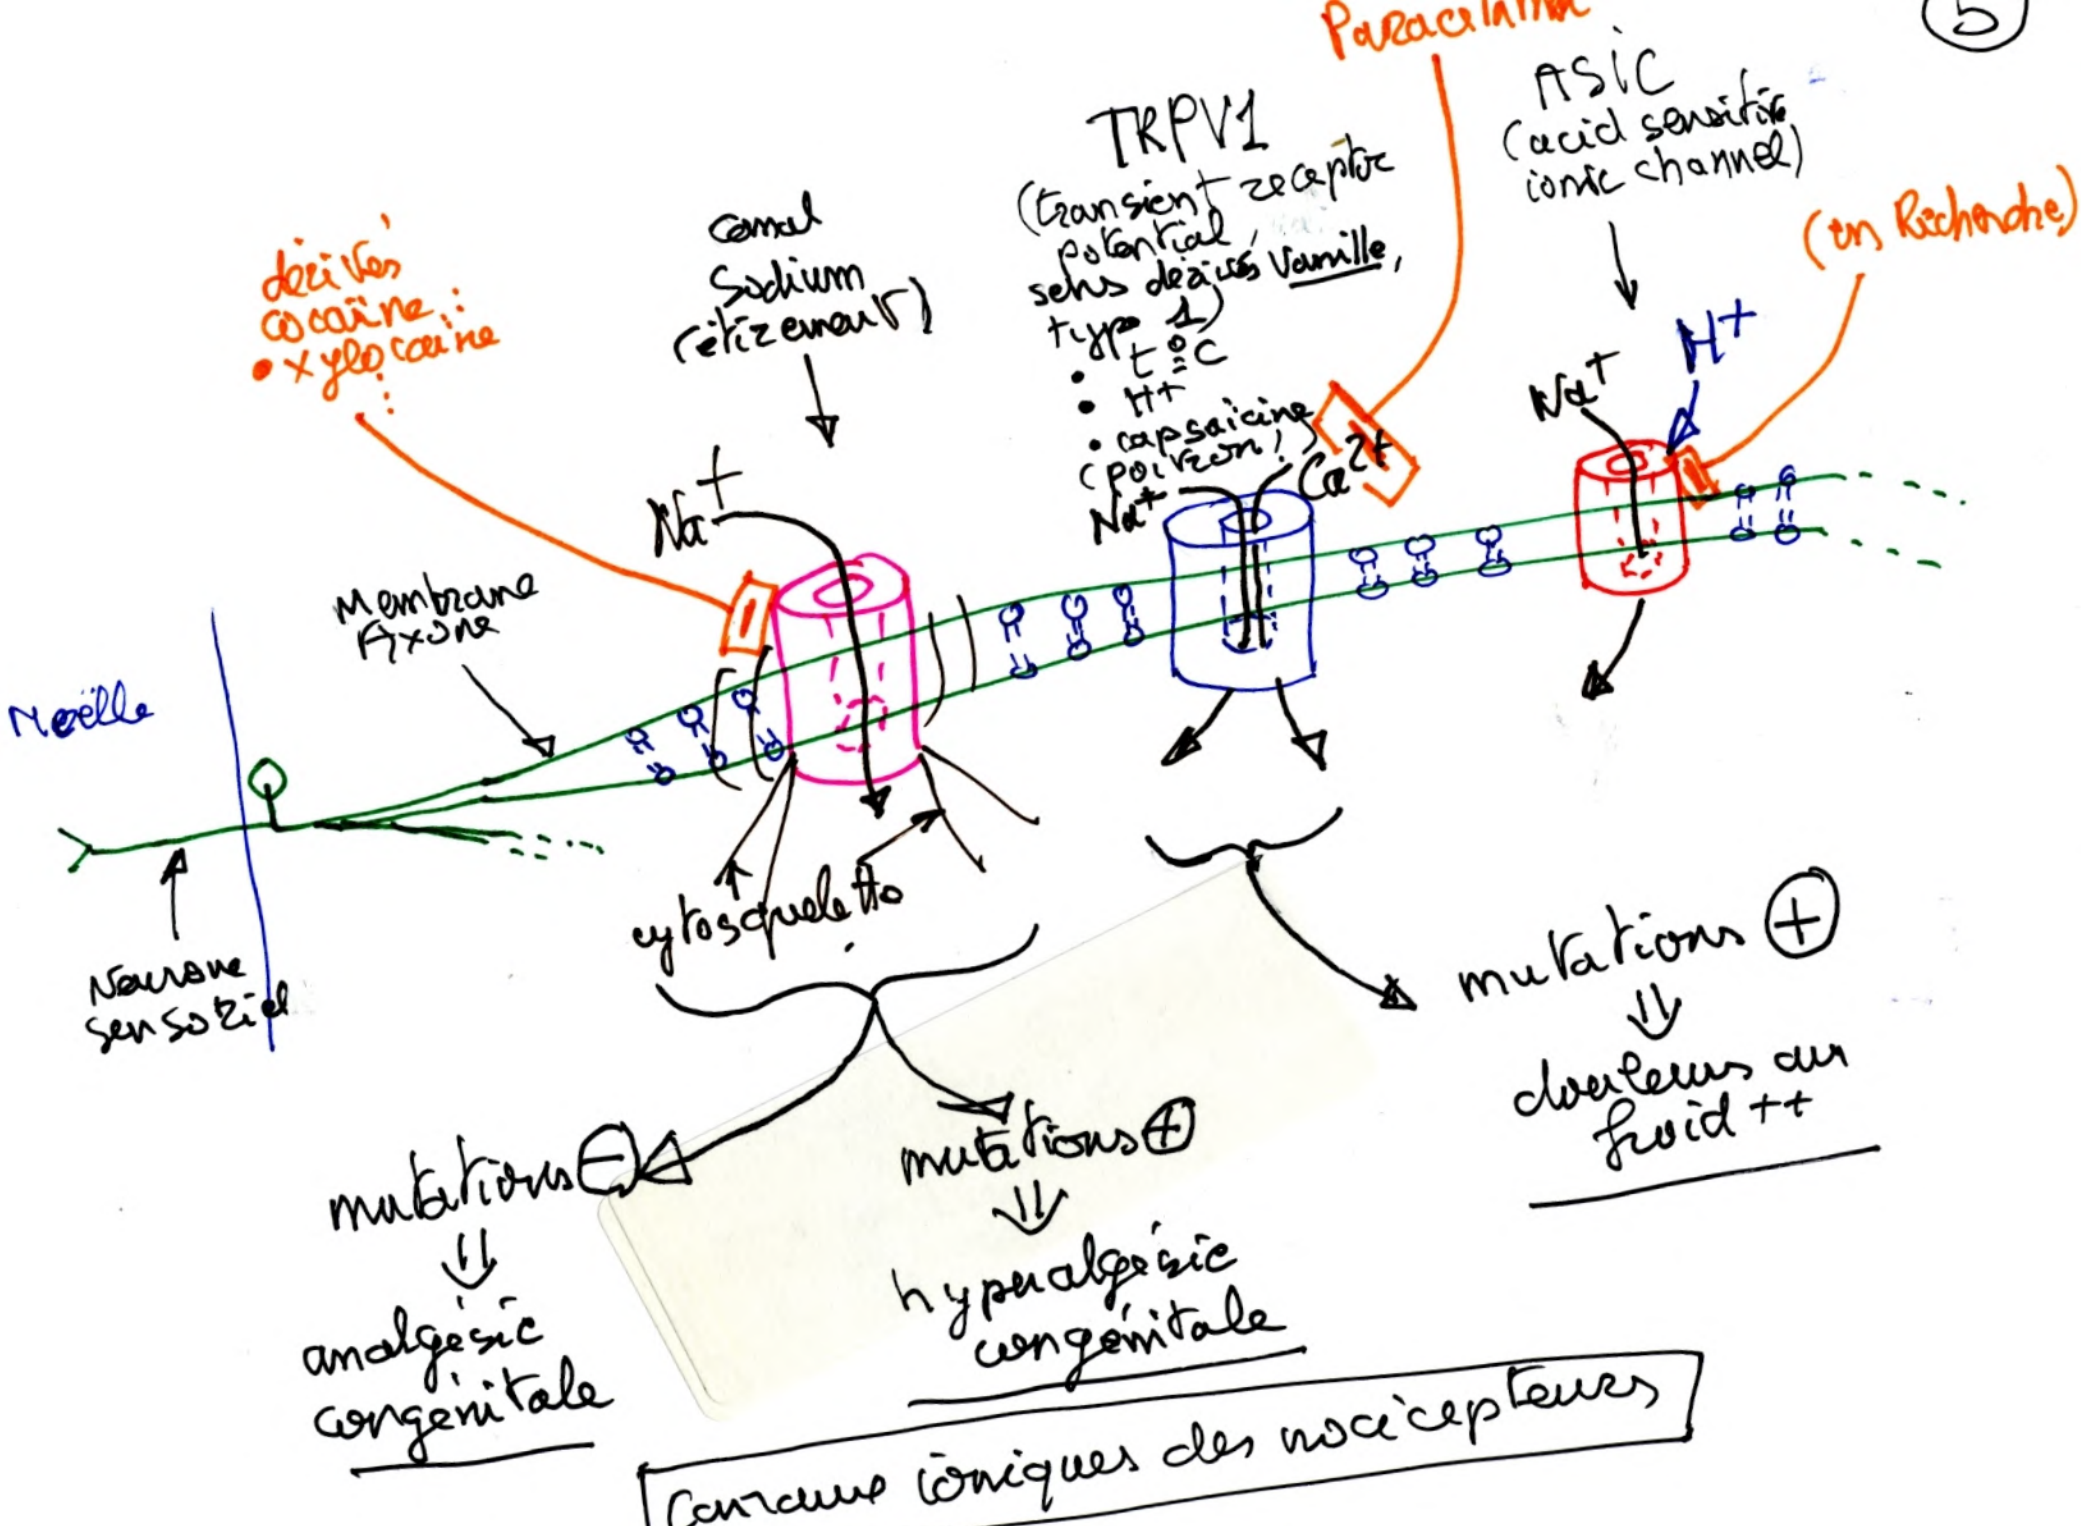 5
Paracétamol
ASIC
(acid sensitive
ionic channel)
(en Recherche)
TRPV1
(transient receptor
potential,
sens dérivés Vanille,
type 1)
• t°C
• H+
• capsaicine
(poivron !)
canal
Sodium
(étirement)
dérivés
cocaïne :
• xylocaïne
:
Na+
Na+
Ca2+
Na+
H+
Membrane
Axone
Moëlle
Neurone
sensoriel
cytosquelette
mutations ⊕
⇓
douleurs au
froid ++
mutations ⊖
⇓
analgésie
congénitale
mutations ⊕
⇓
hyperalgésie
congénitale
Canaux ioniques des nocicepteurs